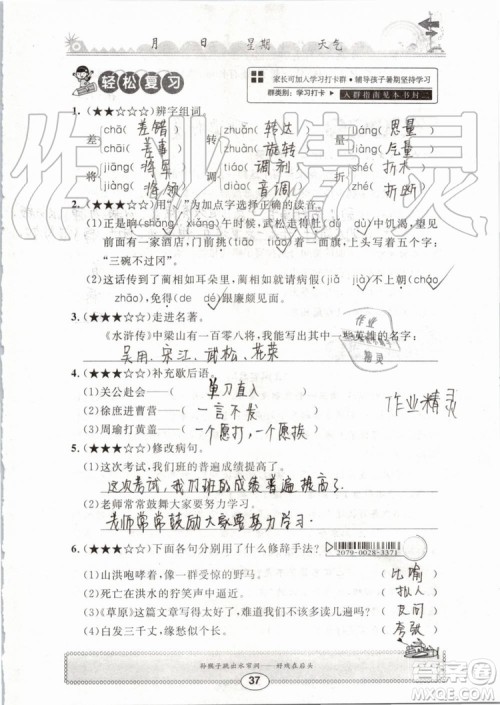 月 日 星期 天气
轻松复习
家长可加入学习打卡群·辅导孩子暑期坚持学习
群类别：学习打卡 入群指南见本书封二
1. (★★★☆☆)辨字组词。
chā( 差错 ) zhuǎn( 转达 ) liáng( 思量 )
差 转 量
chāi( 差事 ) zhuàn( 旋转 ) liàng( 气量 )
jiāng( 将军 ) tiáo( 调剂 ) shé( 折本 )
将 调 折
jiàng( 将领 ) diào( 音调 ) zhé( 折断 )
2. (★★★☆☆)用“、”为加点字选择正确的读音。
(1)正是晌(shǎng xiǎng)午时候，武松走得肚(dù dǔ)中饥渴，望见
前面有一家酒店，门前挑(tiǎo tiāo)着一面旗，上头写着五个字：
“三碗不过冈”。
(2)这话传到了蔺相如耳朵里，蔺相如就请病假(jià jiǎ)不上朝(cháo
zhāo)，免得(de dé)跟廉颇见面。
3. (★★★☆☆)走进名著。
《水浒传》中梁山有一百零八将，其中一些英雄的名字：
吴用、宋江、武松、花荣
4. (★★★☆☆)补充歇后语。
(1)关公赴会——( 单刀直入 )
(2)徐庶进曹营——( 一言不发 )
(3)周瑜打黄盖——( 一个愿打，一个愿挨 )
5. (★★★☆☆)修改病句。
(1)这次考试，我们班的普遍成绩提高了。
这次考试，我们班的成绩普遍提高了。
(2)老师常常鼓舞大家要努力学习。
老师常常鼓励大家要努力学习。
6. (★★★☆☆)下面各句分别用了什么修辞手法？
2079-0028-3371
(1)山洪咆哮着，像一群受惊的野马。 ( 比喻 )
(2)死亡在洪水的狞笑声中逼近。 ( 拟人 )
(3)《草原》这篇文章写得太好了，难道我们不该多读几遍吗？ ( 反问 )
(4)白发三千丈，缘愁似个长。 ( 夸张 )
作业精灵
孙猴子跳出水帘洞——好戏在后头
37